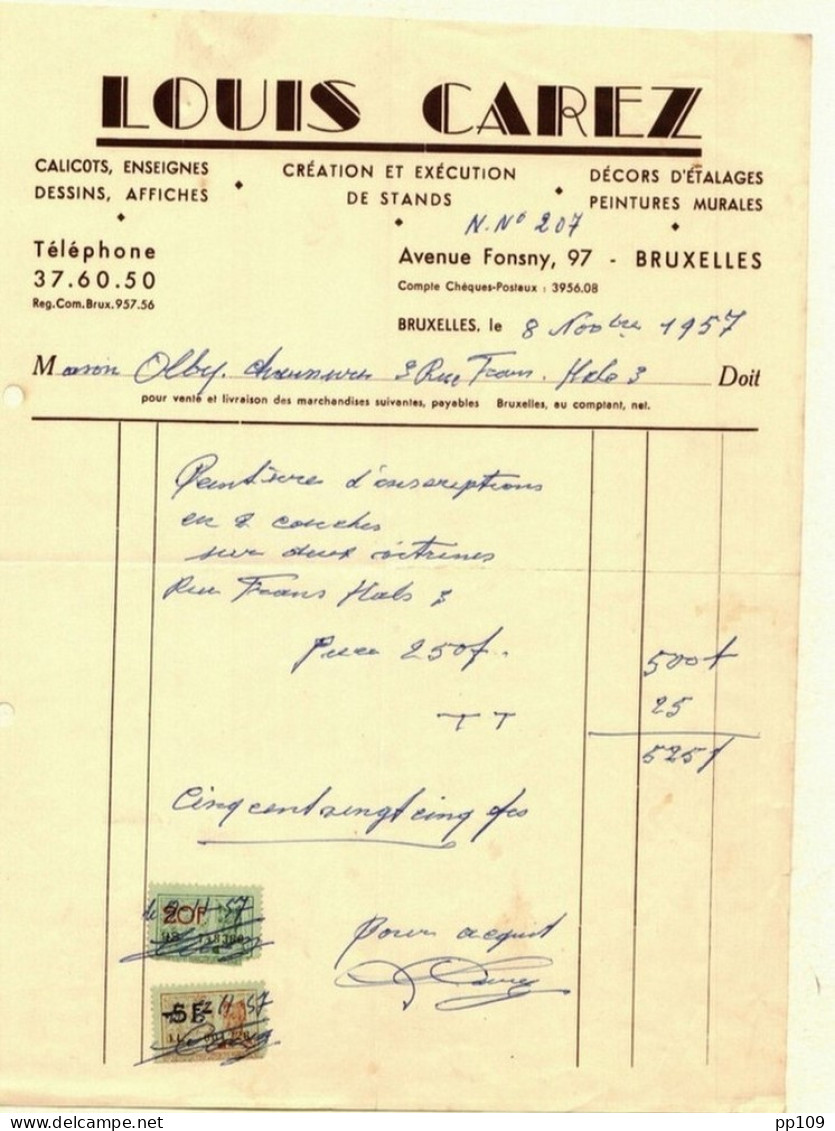 LOUIS CAREZ
CALICOTS, ENSEIGNES
DESSINS, AFFICHES
CRÉATION ET EXÉCUTION
DE STANDS
DÉCORS D'ÉTALAGES
PEINTURES MURALES
N. N° 207
Téléphone
37.60.50
Reg.Com.Brux.957.56
Avenue Fonsny, 97 - BRUXELLES
Compte Chèques-Postaux : 3956.08
BRUXELLES, le 8 Novbre 1957
Maison Olby. chaussures 3 Rue Frans. Hals 3 Doit
pour vente et livraison des marchandises suivantes, payables Bruxelles, au comptant, net.
Peintures d'inscriptions
en 2 couches
sur deux vitrines
Rue Frans Hals 3
250f. 500f
TT 25
525f
Cinq cent vingt cinq frs
20F
57
Pour acquit
5F
57
delcampe.net
pp109